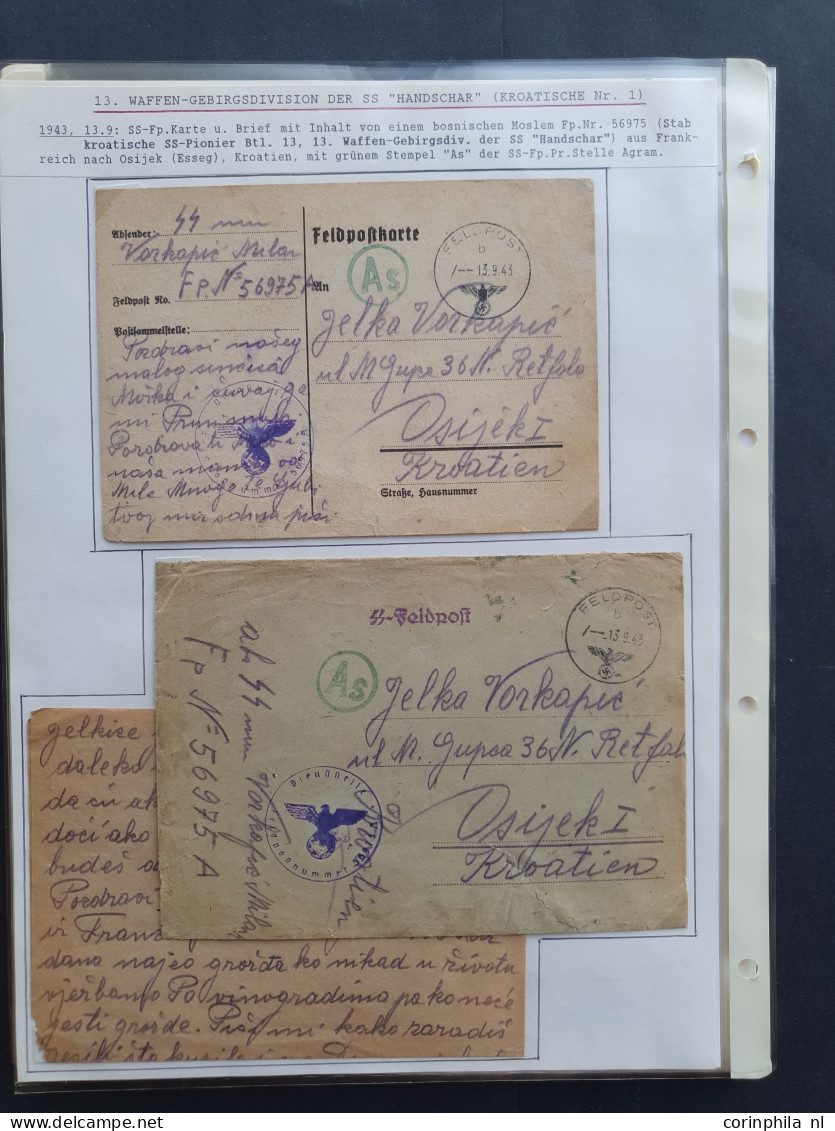 13. WAFFEN-GEBIRGSDIVISION DER SS "HANDSCHAR" (KROATISCHE Nr. 1)
1943, 13.9: SS-Fp.Karte u. Brief mit Inhalt von einem bosnischen Moslem Fp.Nr. 56975 (Stab
kroatische SS-Pionier Btl. 13, 13. Waffen-Gebirgsdiv. der SS "Handschar") aus Frank-
reich nach Osijek (Esseg), Kroatien, mit grünem Stempel "As" der SS-Fp.Pr.Stelle Agram.
Absender:
Vorkapić Milan
Feldpost No. Fp. № 56975 A
Postsammelstelle:
Pozdravi našeg
malog
i čuvaj ga
mi
naša mama
Mile Mnogo te ljubi
tvoj
Feldpostkarte
As
FELDPOST
b
13.9.43
An
Jelka Vorkapić
ul M Gupca 36 N. Retfala
Osijek I
Kroatien
Straße, Hausnummer
SS-Feldpost
As
FELDPOST
b
15.9.43
Jelka Vorkapić
ul M. Gupca 36 N. Retfala
Osijek I
Kroatien
Vorkapić Milan
Fp № 56975 A
Dienststelle
jelkice
daleko
da ću
doći ako
budeš
Pozdravi
dana najeo grožđa ko nikad u životu
vježbamo Po vinogradima pa ko neće
jesti grožđe. Piši mi kako zaradiš
corinphila nl